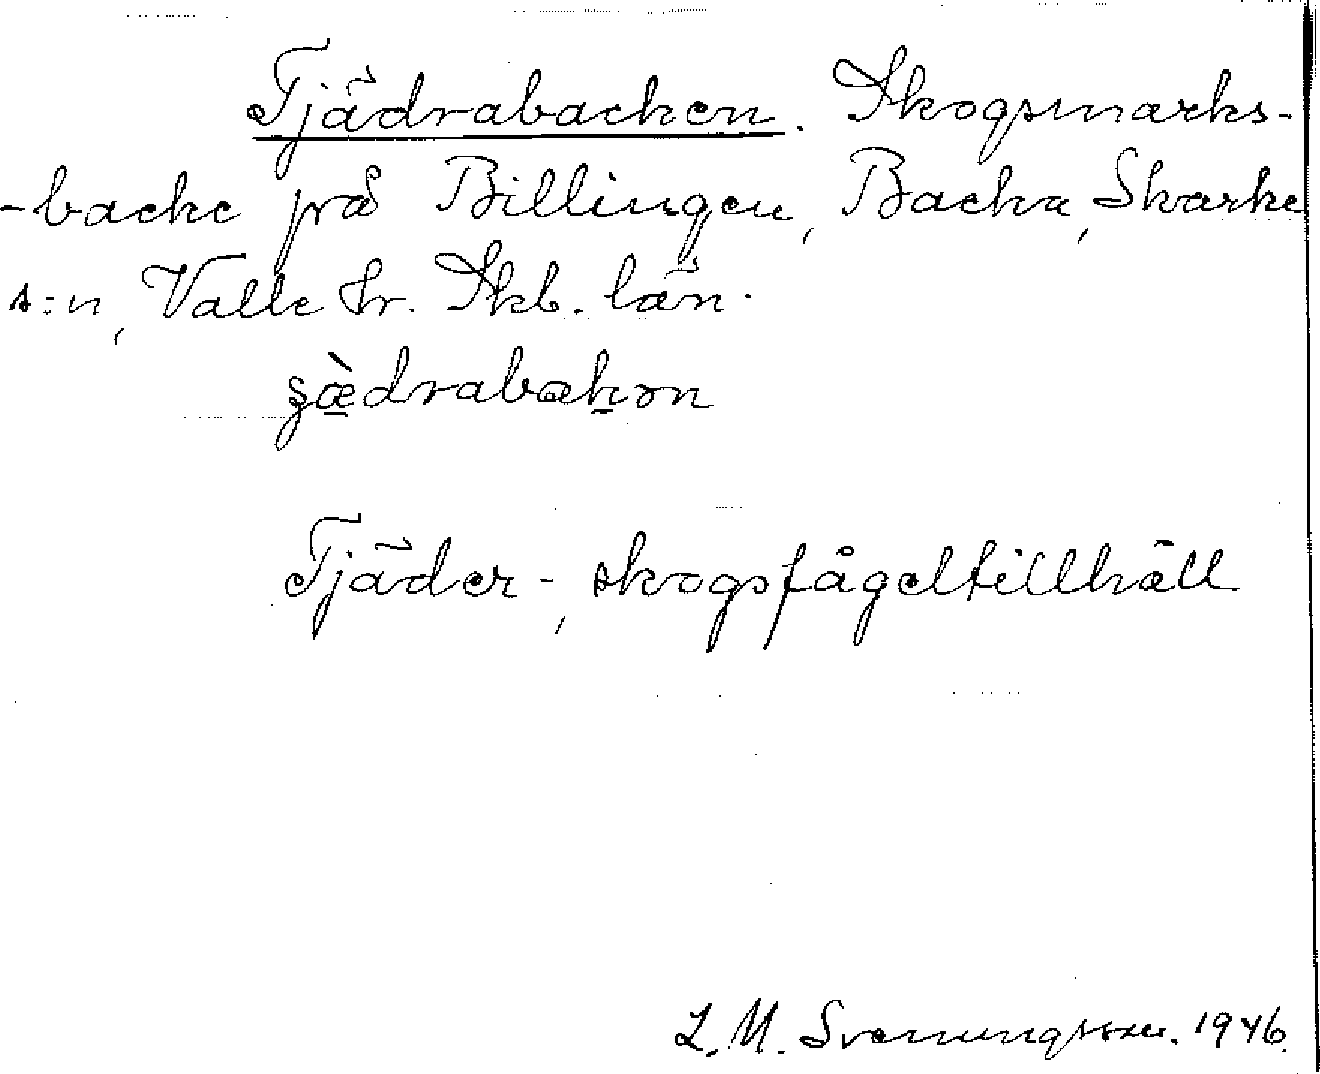 Tjädrabacken. Skogsmarks-
-backe på Billingen, Backa, Skarke
s:n, Valle hr. Skb. län.
ʂæ̀drabakən
Tjäder-, skogsfågeltillhåll
L. M. Svenungsson. 1946.